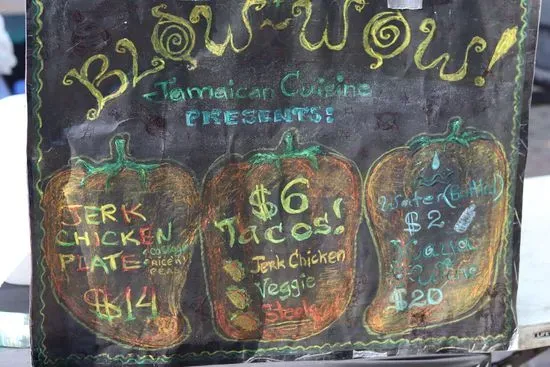 BLOW-WOW!
Jamaican Cuisine
PRESENTS!
JERK
CHICKEN
PLATE
RICE N
PEAS
$14
$6
Tacos!
Jerk Chicken
Veggie
Steak
Water (Bottle)
$2
$20